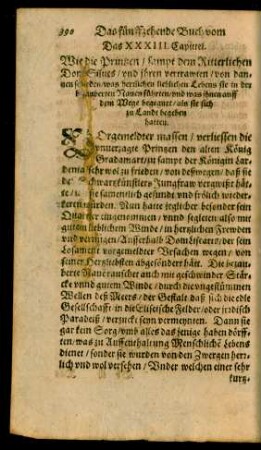 390 Das fünffzehende Buch/vom
Das XXXIII. Capittel.
Wie die Printzen/ sampt dem Ritterlichen
Don Silues/ vnd jhren vertrawten/ von dan-
nen was herrlichen lieblichen Lebens sie in der
Nauen führten/ vnd was ihnen auff
dem Wege begegnet/ als sie sich
zu Landt begeben
hatten.
Vorgemelter massen/ verliessen die
vnuerzagte Printzen den alten König
Gradamart/ zu sampt der Königin Lar-
denia sehr wol zu frieden/ von deßwegen/ daß sie
die Schwartzkünstler Jungfraw vergwißt hät-
te/ sie samenlich gesundt vnd frölich widerzu-
Nun hatte jeglicher besonder sein
Quartier eingenommen/ vnnd segleten also mit
gutem lieblichem Winde/ in hertzlichen Frewden
vnd vernügen/ Ausserhalb Don Lisearts/ der sein
Losament vorgemelter Vrsachen wegen/ von
seiner Hertzliebsten abgesöndert hätt. Die bezau-
berte Naue rauschet auch mit geschwinder Stär-
cke vnnd gutem Winde/ durch die vngestümmen
Wellen deß Meers/ der Gestalt daß sich die edle
Gesellschafft/ in die Eliseische Felder/ oder jrrdisch
Paradeiß/ verzuckt seyn vermeynten. Dann sie
gar kein Sorg/ vmb alles das jenige haben dörff-
ten/ was zu Auffenthaltung Menschlichē Lebens
dienet/ sonder sie wurden von den Zwergen herr-
lich vnd wol versehen/ Vnder welchen einer sehr
kurtz-